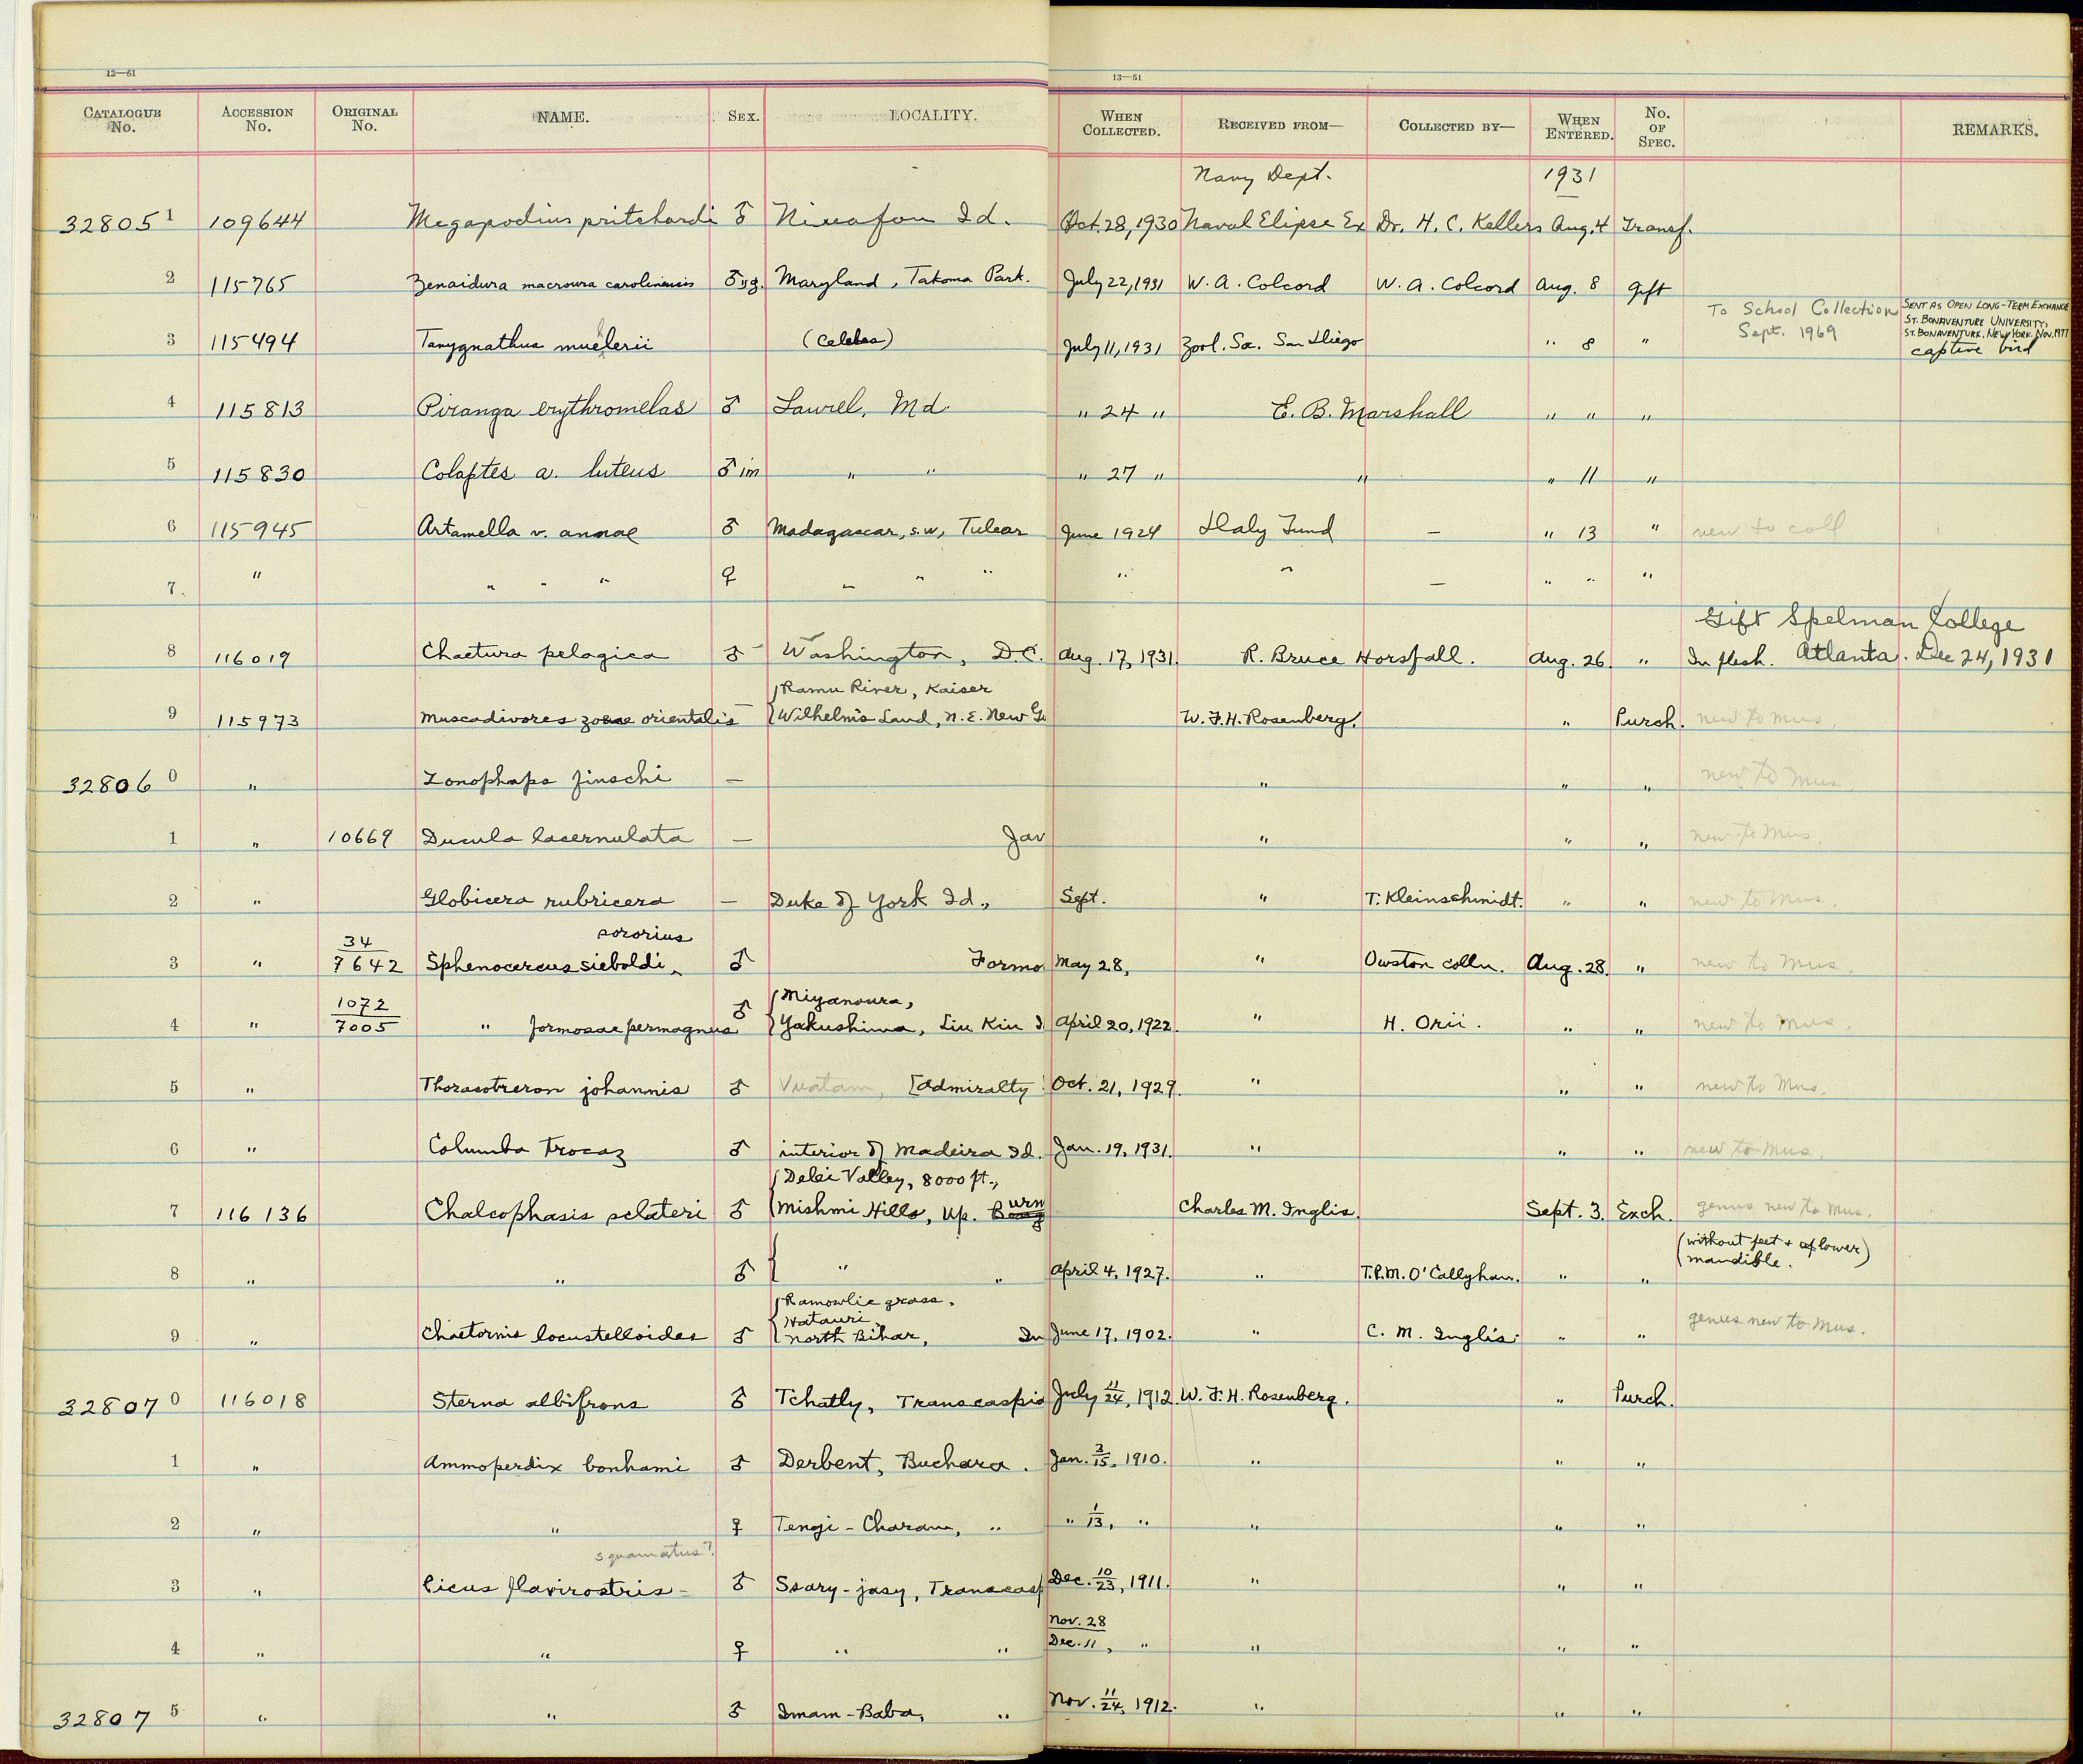 13—51 13—51
CATALOGUE No. ACCESSION No. ORIGINAL No. NAME. SEX. LOCALITY. WHEN COLLECTED. RECEIVED FROM— COLLECTED BY— WHEN ENTERED. No. OF SPEC. REMARKS.
Navy Dept. 1931
32805 1 109644 Megapodius pritchardi ♂ Niuafou Id. Oct. 28, 1930 Naval Elipse Ex Dr. H. C. Kellers Aug. 4 Transf.
2 115765 Zenaidura macroura carolinensis ♂ yg. Maryland, Takoma Park. July 22, 1931 W. A. Colcord W. A. Colcord Aug. 8 Gift
To School Collection Sept. 1969
SENT AS OPEN LONG-TERM EXCHANGE
ST. BONAVENTURE UNIVERSITY,
ST. BONAVENTURE, NEW YORK. NOV. 1977
3 115494 Tanygnathus muelerii (Celebes) July 11, 1931 Zool. Soc. San Diego " 8 " captive bird
4 115813 Piranga erythromelas ♂ Laurel, Md. " 24 " E. B. Marshall " " "
5 115830 Colaptes a. luteus ♂ im " " " 27 " " " 11 "
6 115945 Artamella v. annae ♂ Madagascar, s.w, Tulear June 1924 Daly Fund — " 13 " new to coll
7 " " " " ♀ " " " " " — " " "
Gift Spelman College
8 116019 Chaetura pelagica ♂ Washington, D.C. Aug. 17, 1931. R. Bruce Horsfall. Aug. 26. " In flesh. Atlanta. Dec 24, 1931
Ramu River, Kaiser
9 115973 Muscadivores zoeae orientalis — Wilhelm's Land, N. E. New Gu W. F. H. Rosenberg. " Purch. new to mus.
32806 0 " Zonophaps finschi — " " " new to mus.
1 " 10669 Ducula lacernulata — Jav " " " new to mus.
2 " Globicera rubricera — Duke of York Id., Sept. " T. Kleinschmidt. " " new to mus.
sororius
3 " 34/7642 Sphenocercus sieboldi ‸ ♂ Formo May 28, " Owston colln. Aug. 28. " new to mus.
Miyanoura,
4 " 1072/7005 " formosae permagnus ♂ Yakushima, Liu Kiu I April 20, 1922. " H. Orii. " " new to mus.
5 " Thoracotreron johannis ♂ Vuatam, [Admiralty Oct. 21, 1929. " " " new to mus.
6 " Columba trocaz ♂ interior of Madeira Id. Jan. 19, 1931. " " " new to mus.
Delei Valley, 8000 ft.,
7 116136 Chalcophasis sclateri ♂ Mishmi Hills, Up. Burm Charles M. Inglis. Sept. 3. Exch. genus new to mus.
(without feet & lower)
8 " " ♂ " " April 4, 1927. " T.R.M. O'Callyhan. " " mandible.
Ramowlie grass,
Hatauri,
9 " Chaetornis locustelloides ♂ north Bihar, In June 17, 1902. " C. M. Inglis. " " genus new to mus.
32807 0 116018 Sterna albifrons ♂ Tchatly, Transcaspia July 11/24, 1912. W. F. H. Rosenberg. " Purch.
1 " Ammoperdix bonhami ♂ Derbent, Buchara. Jan. 2/15, 1910. " " "
2 " " ♀ Tengi-Charam, " " 1/13, " " " "
squamatus?
3 " Picus flavirostris - ♂ Ssary-jasy, Transcasp Dec. 10/23, 1911. " " "
4 " " ♀ " " Nov. 28/Dec. 11, " " " "
32807 5 " " ♂ Imam-Baba, " Nov. 11/24, 1912. " " "